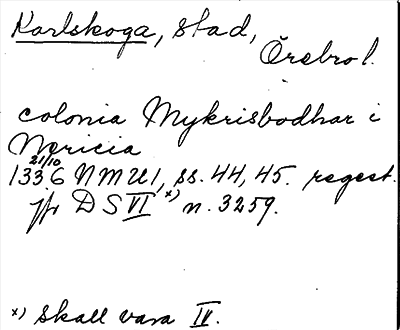 Karlskoga, stad,
Örebro l.
colonia Mykrisbodhar i
Nericia
21/10
1336 NMU1, ss. 44, 45. regest.
jfr DS VI x) n. 3259.
x) skall vara IV.